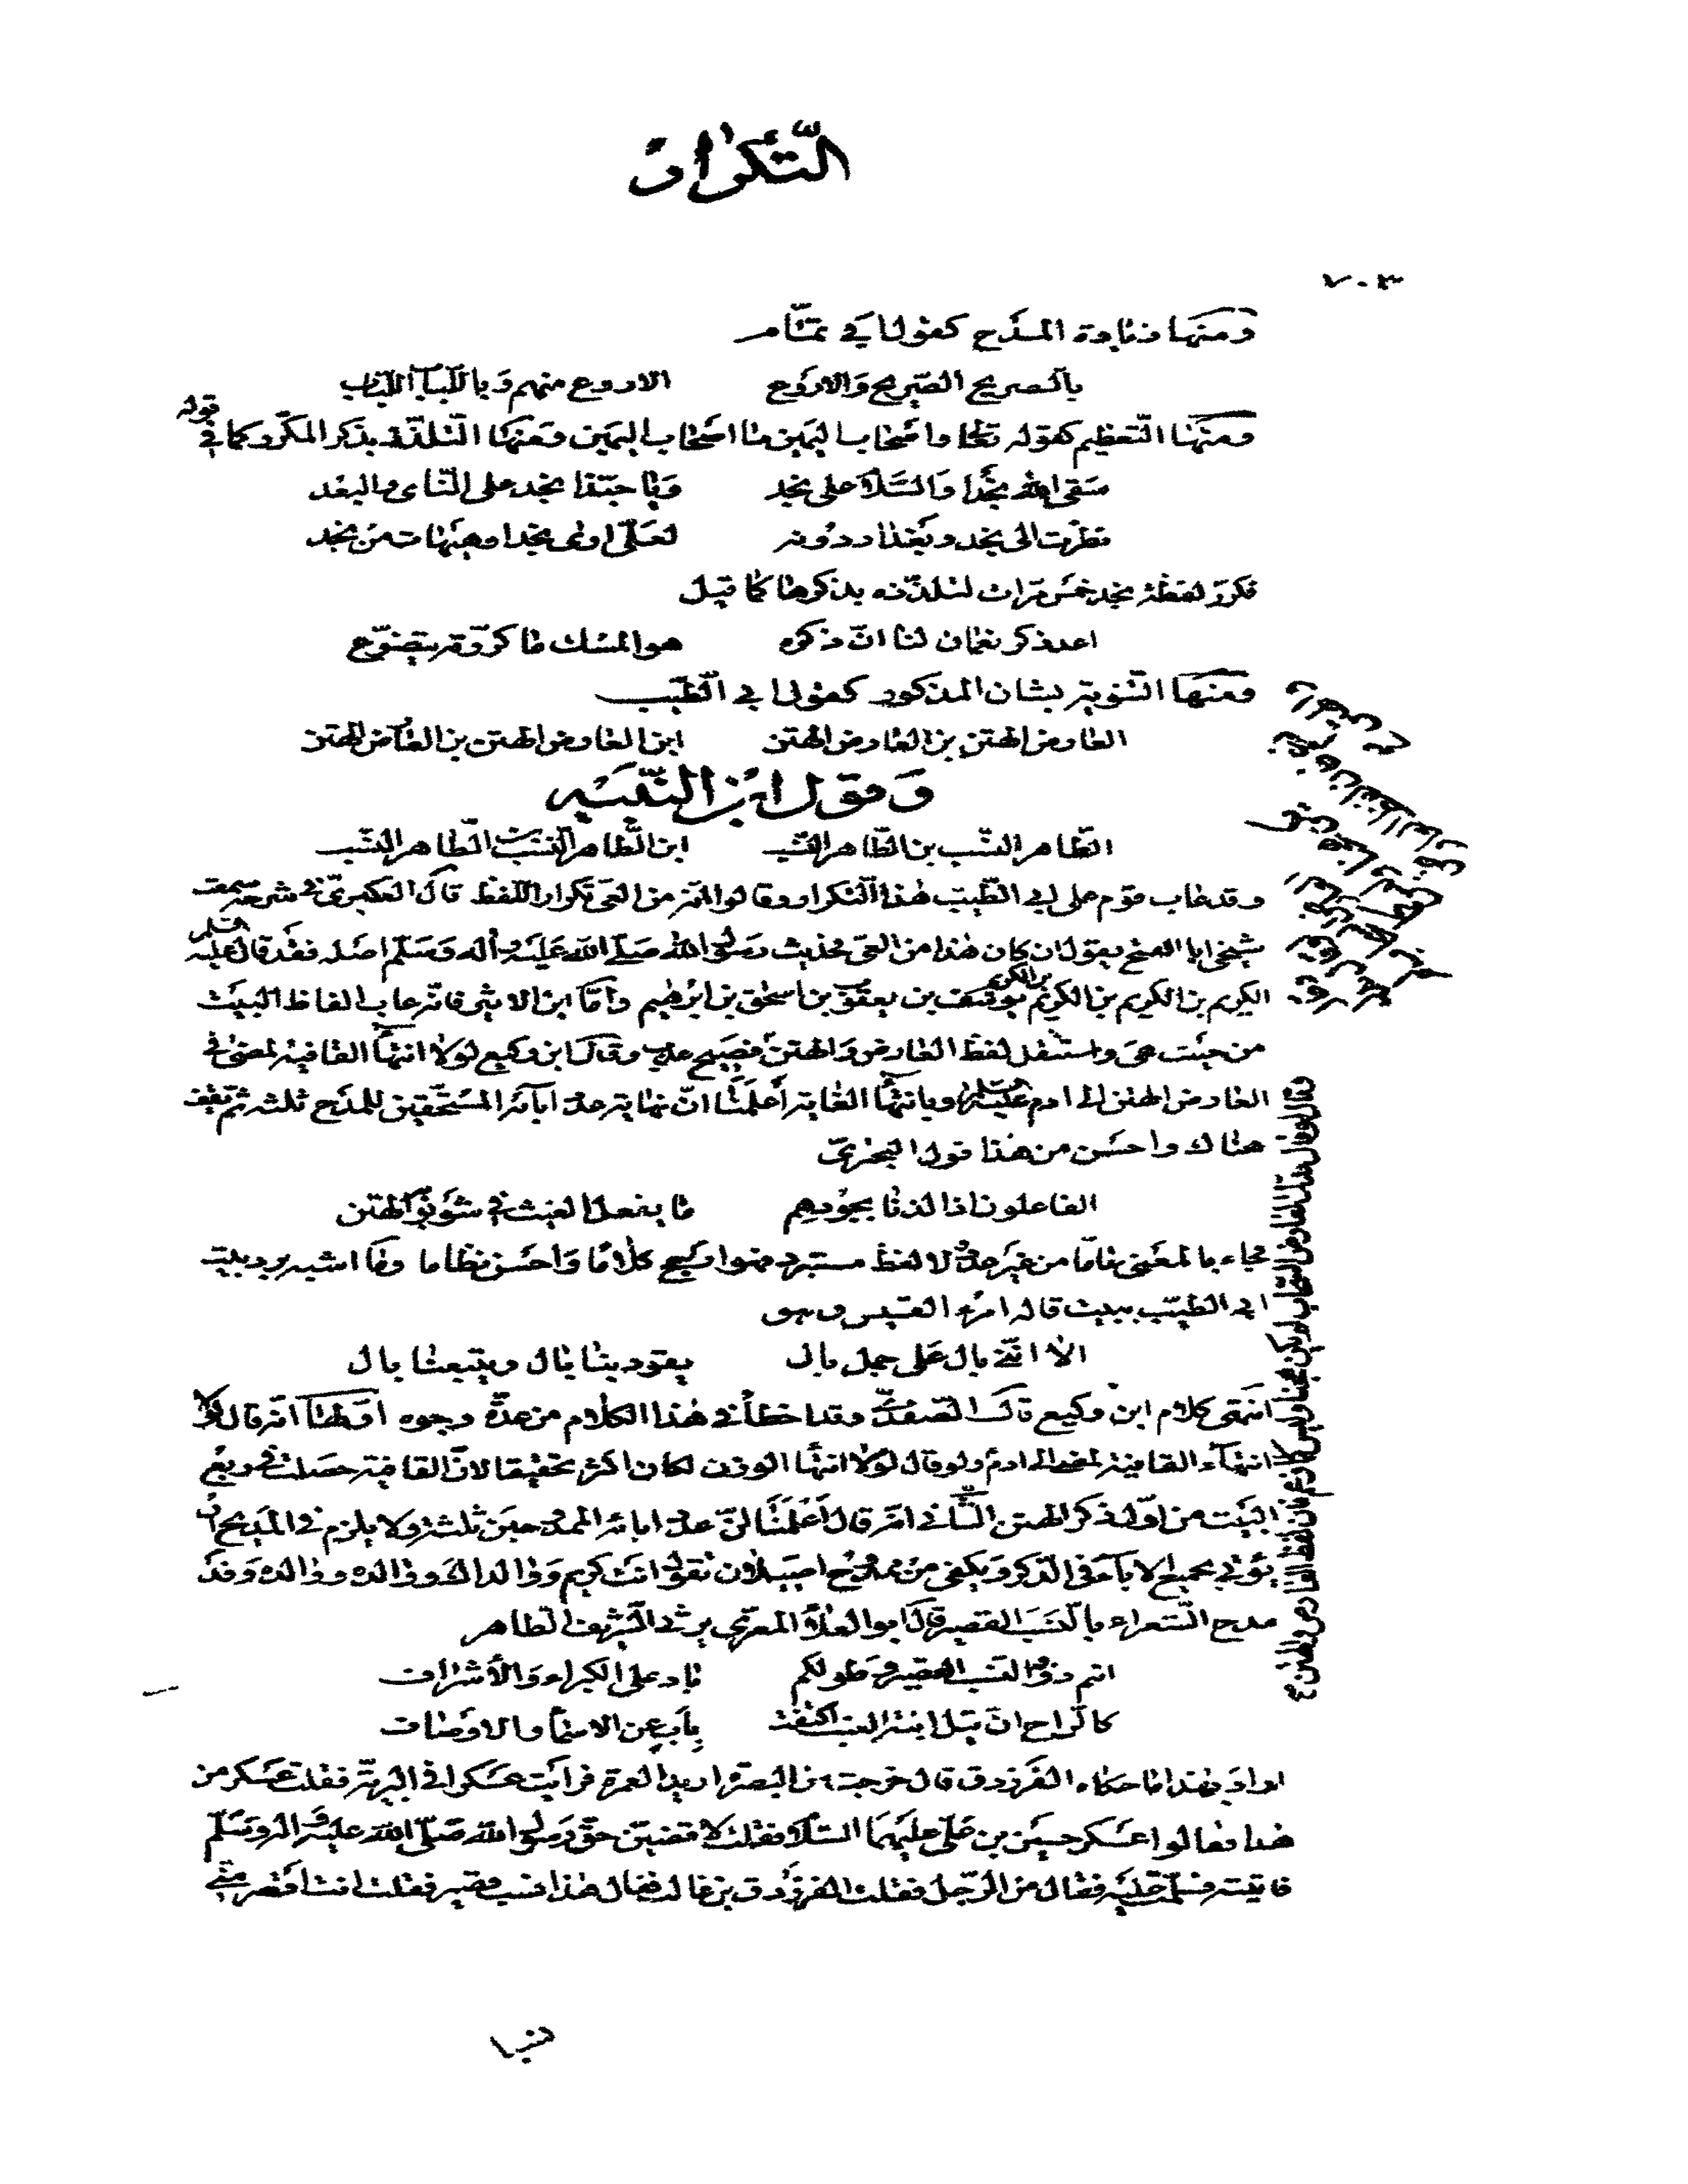 التكرار
٧٠٣
ومنها زيادة المدح كقول ابي تمام
بالصريح الصريح والاروع الاروع منهم وباللباب اللباب
ومنها التعظيم كقوله تعالى واصحاب اليمين ما اصحاب اليمين ومنها التلذذ بذكر المكرر كما في قوله
سقى الله نجدا والسلام على نجد ويا حبذا نجد على الناي والبعد
نظرت الى نجد وبغداد دونه لعلي ارى نجدا وهيهات من نجد
فكرر لفظة نجد خمس مرات لتلذذه بذكرها كما قيل
اعد ذكر نعمان لنا ان ذكره هو المسك ما كررته يتضوع
ومنها التنويه بشان المذكور كقول ابي الطيب
العارض الهتن بن العارض الهتن ابن العارض الهتن بن العارض الهتن
وقول ابن النبيه
الطاهر النسب بن الطاهر النسب ابن الطاهر النسب الطاهر النسب
وقد عاب قوم على ابي الطيب هذا التكرار وقالوا انه من العي تكرار اللفظ قال العكبري في شرحه سمعت
شيخي ابا الفتح يقول ان كان هذا من العي فحديث رسول الله صلى الله عليه وآله وسلم اصله فقد قال عليه السلم
الكريم بن الكريم بن الكريم بن الكريم يوسف بن يعقوب بن اسحق بن ابرهيم واما ابن الاثير فانه عاب الفاظ البيت
من حيث هي واستثقل لفظ العارض والهتن فصيح عذب وقال ابن وكيع لولا انتهاء القافية لمضى في
العارض الهتن الى ادم عليه السلم وبانتهاء الغاية أعلمنا ان نهاية عدة آبائه المستحقين للمدح ثلثة ثم تقف
هناك واحسن من هذا قول البحتري
الفاعلون اذا لذنا بجودهم ما يفعل الغيث في شؤبوبه الهتن
فجاء بالمعنى تاما من غير حشو لا لفظ مستبرد فهو ارجح كلاما واحسن نظاما وما اشبه برد بيت
ابي الطيب ببيت قاله امرء القيس وهو
الا انني بال على جمل بال يقود بنا بال ويتبعنا بال
انتهى كلام ابن وكيع قال الصفدي وقد اخطأ في هذا الكلام من عدة وجوه اولها انه قال لولا
انتهاء القافية لمضى الى ادم ولو قال لولا انتهاء الوزن لكان اكثر تحقيقا لان القافية حصلت في ربع
البيت من اول ذكر الهتن الثاني انه قال أعلمنا ان عدة ابائه الممدوحين ثلثة ولا يلزم في المديح ان
يؤتى بجميع الآباء في الذكر ويكفي من ممدوح اصيل ان تقول انت كريم ووالدك ووالده ووالده وقد
مدح الشعراء بالنسب القصير قال ابو العلاء المعري يرثي الشريف الطاهر
انتم ذوو النسب القصير وطولكم باد على الكبراء والأشراف
كالراح ان قيل ابنة العنب اكتفت بأب عن الاسماء والاوصاف
اراد بهذا ما حكاه الفرزدق قال خرجت من البصرة اريد العمرة فرأيت عسكرا في البرية فقلت عسكر من
هذا فقالوا عسكر حسين بن علي عليهما السلام فقلت لاقضين حق رسول الله صلى الله عليه وآله وسلم
فاتيته فسلمت عليه فقال من الرجل فقلت الفرزدق بن غالب فقال هذا نسب قصير فقلت انت اقصر مني